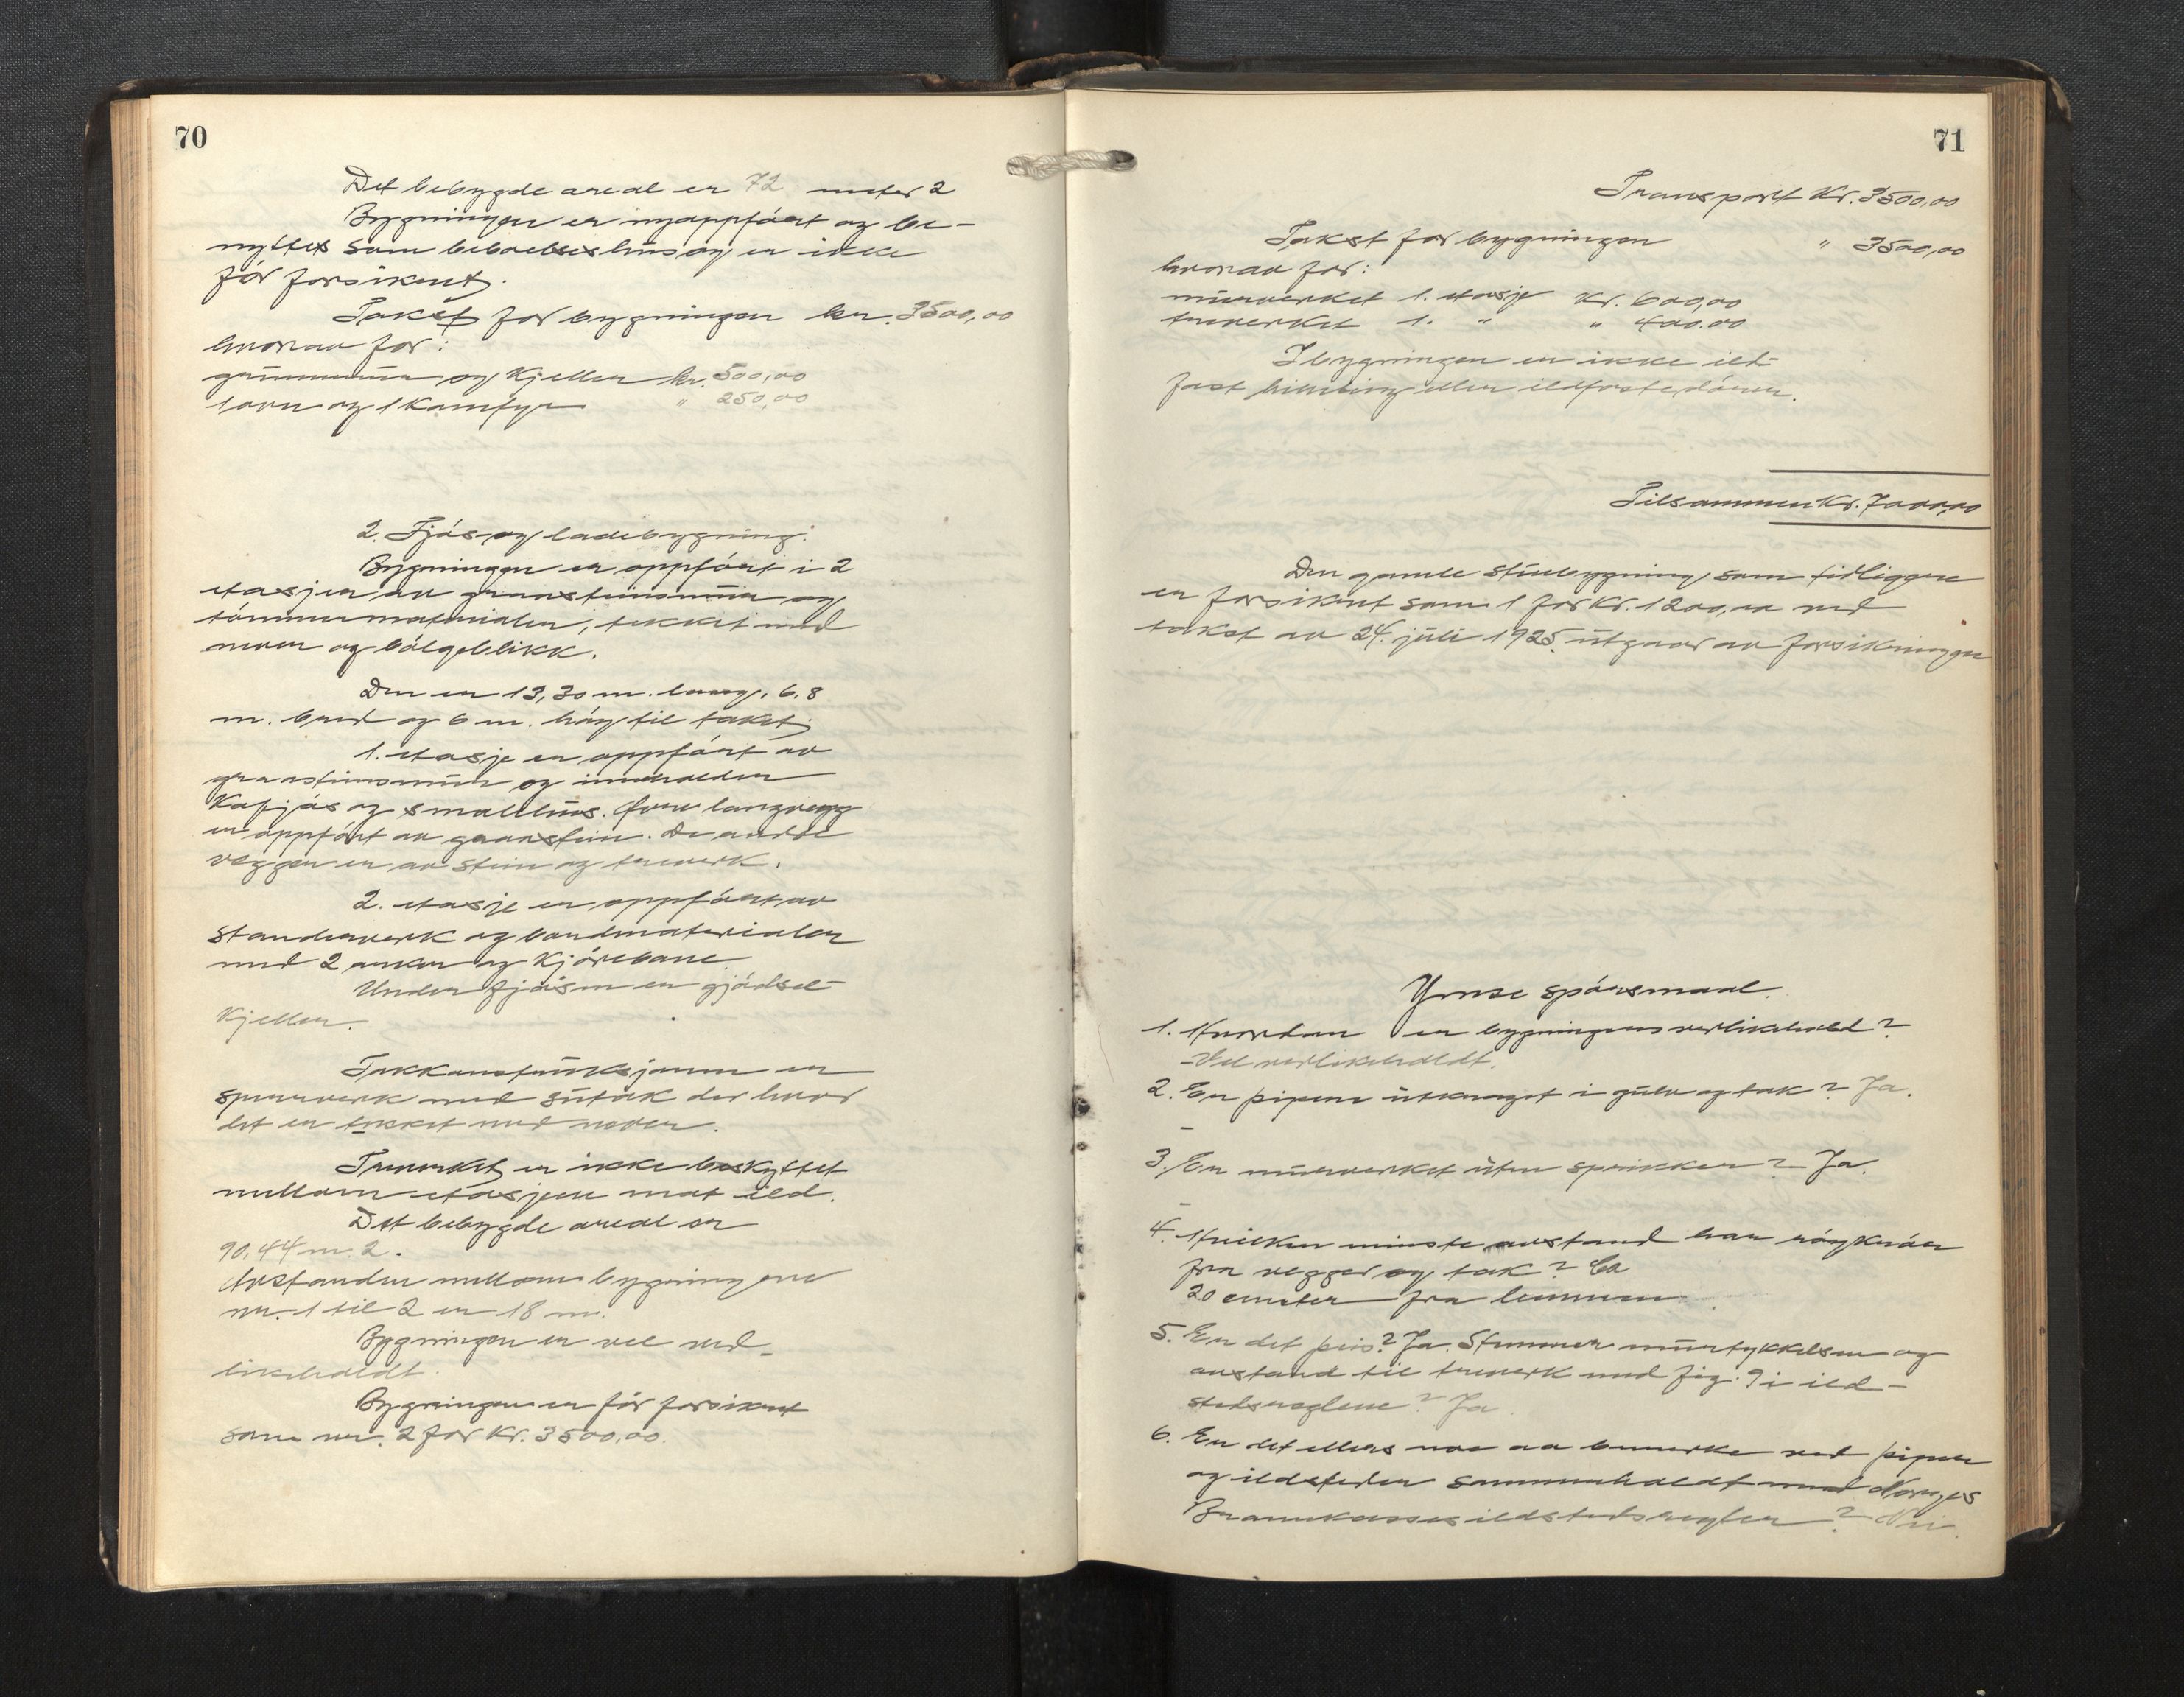 70
Det bebygde areal er 72 meter 2
Bygningen er nyoppfört og be-
nyttes som beboelseshus og er ikke
för forsikret.
Takst for bygningen kr. 3500,00
hvorav for:
grunnmur og kjeller kr. 500,00
1 ovn og 1 komfyr " 250,00
2. Fjös og ladebygning.
Bygningen er oppfört i 2
etasjer av graasteinsmur og
tömmermaterialer, tekket med
never og bölgeblikk.
Den er 13,30 m. lang, 6,8
m. bred og 6 m. höy til taket.
1. etasje er oppfört av
graasteinsmur og inneholder
kufjös og smalehus. Övre langvegg
er oppfört av graastein. De andre
vegger er av stein og treverk.
2. etasje er oppfört av
stenderverk og bordmaterialer
med 2 and kjörebane.
Under fjösen er gjödsel-
kjeller.
Takkonstruksjonen er
sperreverk med sutak der hvor
det er tekket med never.
Treverket er ikke beskyttet
mellom etasjene mot ild.
Det bebygde areal er
90,44 m. 2.
Avstanden mellom bygningene
nr. 1 til 2 er 18 m.
Bygningen er vel ved-
likeholdt.
Bygningen er för forsikret
som nr. 2 for Kr. 3500,00.
71
Transport Kr. 3500,00
Takst for bygningen " 3500,00
hvorav for:
murverket 1. etasje Kr. 600,00
treverket 1. " " 400.00
I bygningen er ikke ild-
fast himling eller ildfaste dörer.
Tilsammen Kr. 7000,00
Den gamle stuebygning som tidligere
er forsikret som 1 for Kr. 1200,00 ved
takst av 24. juli 1925 utgaar av forsikringen
Ymse spörsmaal.
1. Hvordan er bygningens vedlikehold?
- Vel vedlikeholdt.
2. Er pipene utkraget i gulv og tak? Ja.
-
3. Er murverket uten sprikker? Ja.
-
4. Hvilken minste avstand har röykrör
fra vegger og tak? Ca
20 cmeter fra lemmen
5. Er det peis? Ja. Stemmer murtykkelsen og
avstand til treverk med fig. 9 i ild-
stedsreglene? Ja.
6. Er det ellers noe aa bemerke ved piper
og ildsteder sammenholdt med Norges
Brannkasses ildstedsregler? Nei.